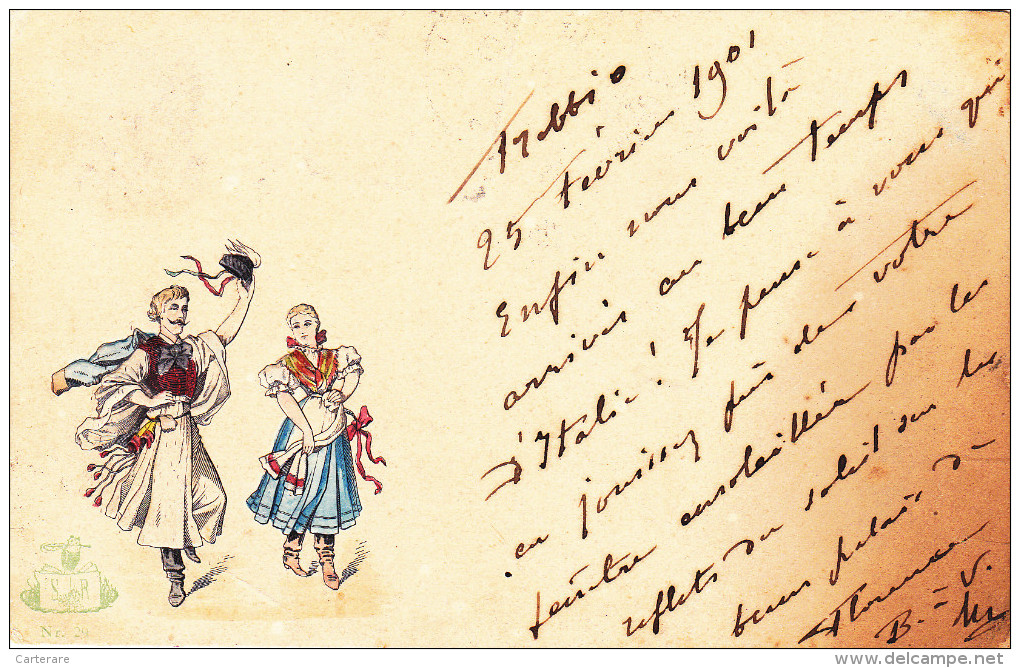 Trebbio
25 février 1901
Enfin nous voilà
arrivés au beau temps
d'Italie! Je pense à vous qui
en jouissez près de votre
fenêtre ensoleillée par les
reflets du soleil sur les
beaux palais de
Florence
B. = V.
S R
Nr. 29
Carterare
www.delcampe.net